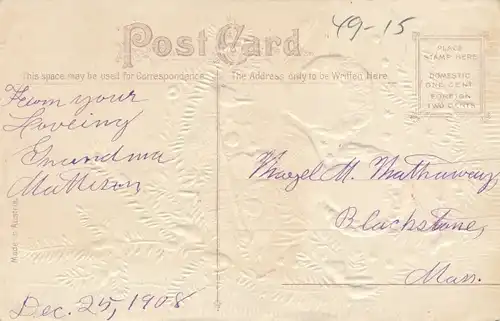 49-15
Post Card
This space may be used for Correspondence
The Address only to be Written Here.
PLACE
STAMP HERE
DOMESTIC
ONE CENT
FOREIGN
TWO CENTS
From your
Loveing
Grandma
Matteson
Hazel M. Hathaway
Blackstone,
Mass.
Made in Austria.
Dec. 25, 1908